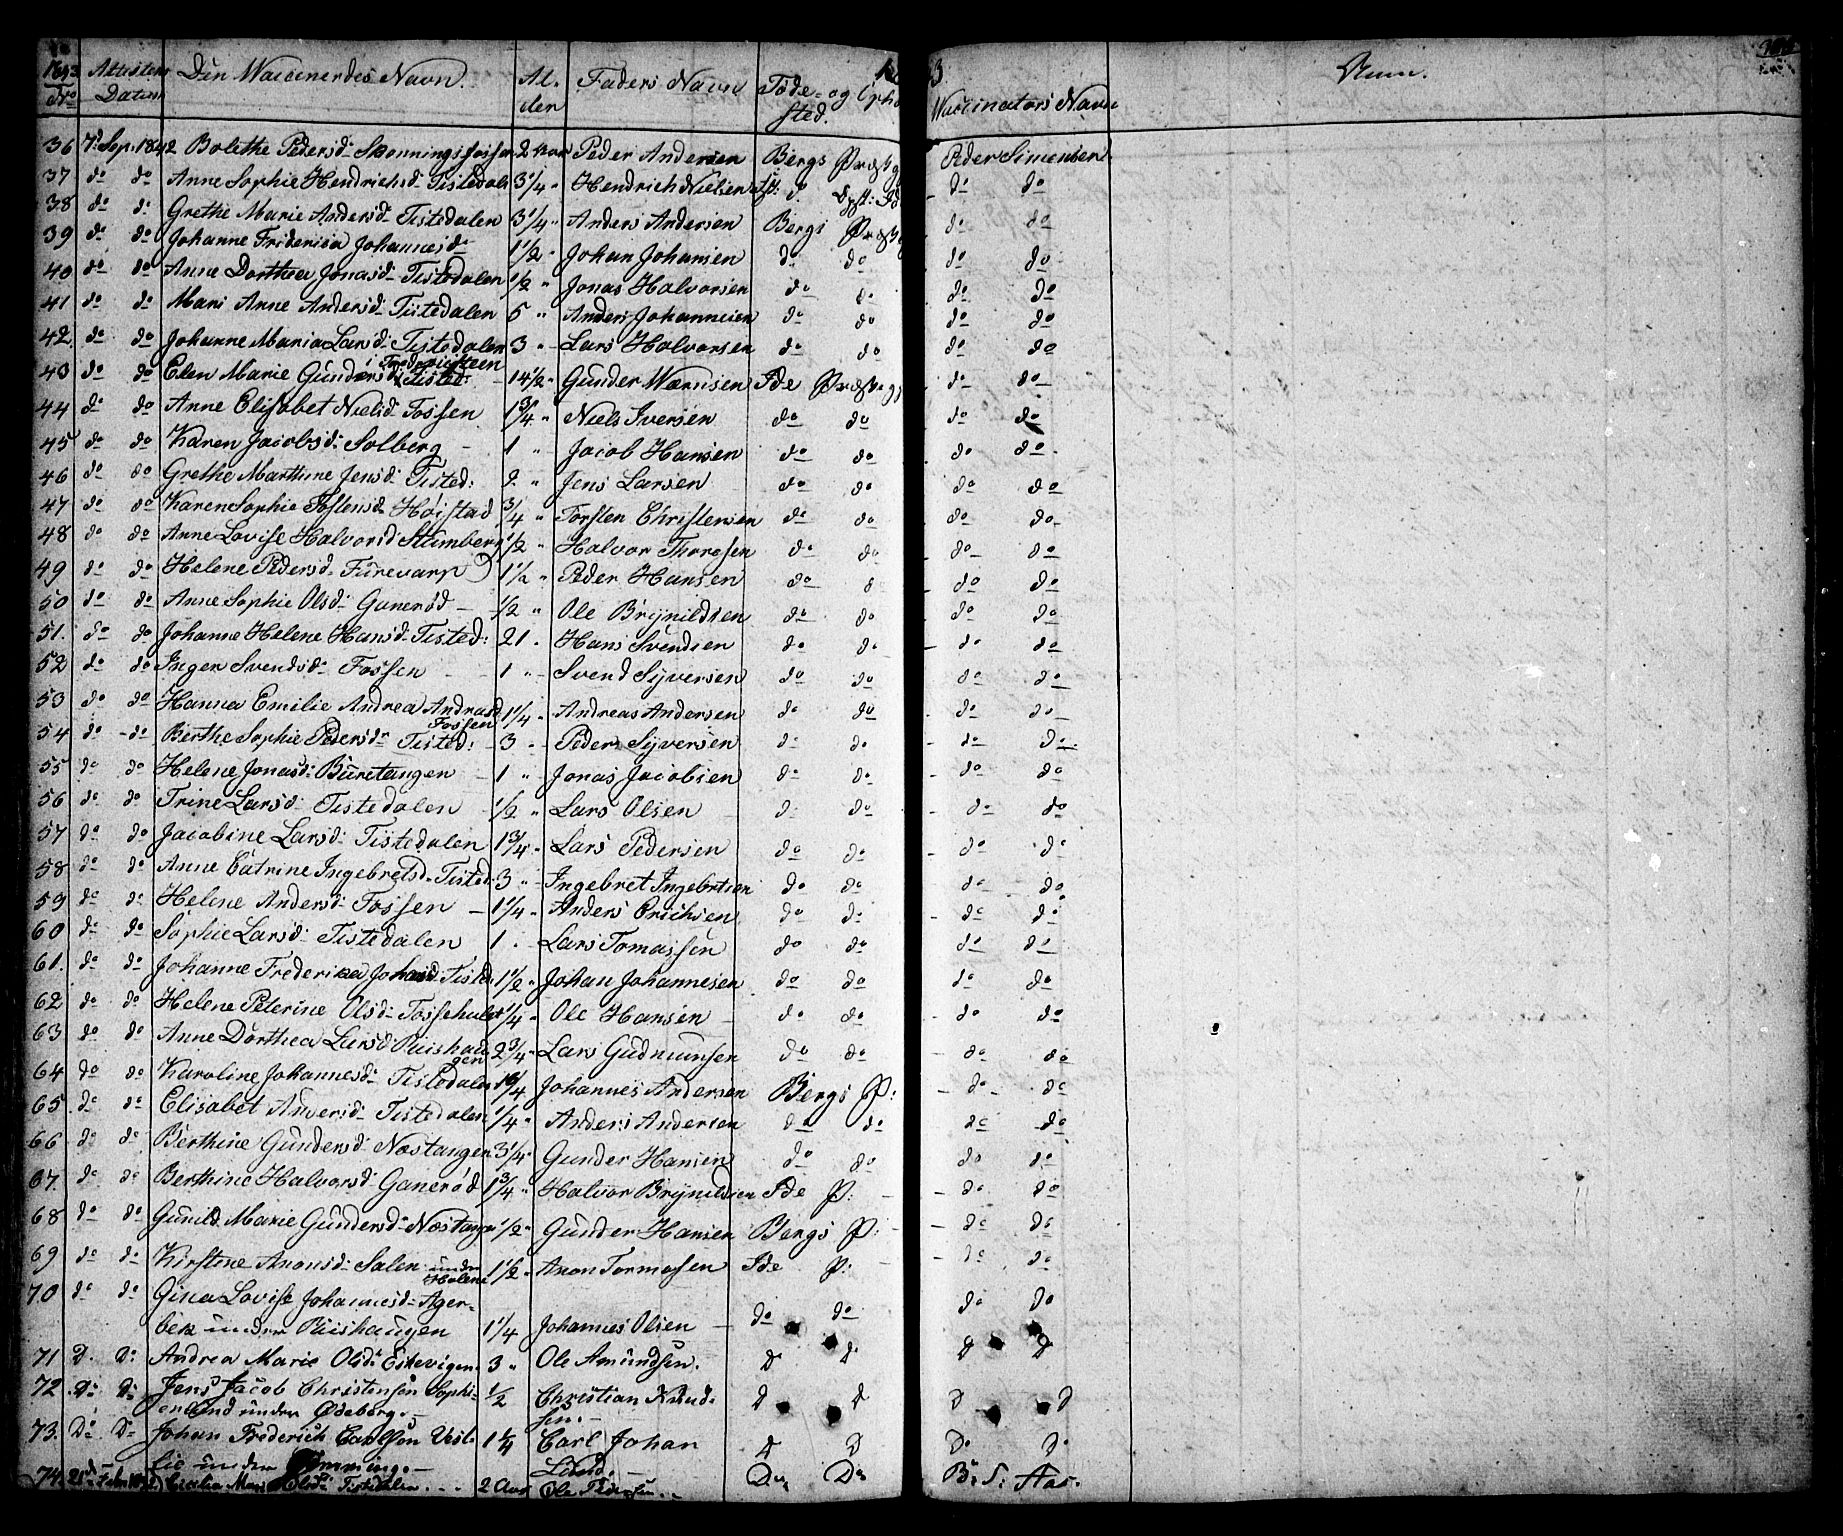 1843 Attestens Den Waccineredes Navn. Al- Faders Navn Føde- og Opho
No Datum der sted. Waccinators Navn Anm.
36 7d Sep: 1842 Bolethe Pedersd: Skonningsfossen 2 Aar Peder Andersen Bergs Præstg Peder Simensen
37 do do Anne Sophie Hendrichsd: Tistedal 3 1/4 " Hendrich Nielsen do do
38 do do Grethe Marie Andersd: Tistedalen 3 1/4 " Anders Andersen Bergs Præstg do do
39 do do Johanne Friderica Johannesd: 1 1/2 " Johan Johansen do do do do
40 do do Anne Dorthea Jonasd: Tistedalen 1/2 " Jonas Halvorsen do do do do
41 do do Mari Anne Andersd: Tistedalen 5 " Anders Johannesen do do do do
42. do do Johanne Maria Larsd: Tistedalen 3 " Lars Halvorsen do do do do
i Fredrichsteen
43 do do Elen Marie Gundersd: Tisted: 14 1/2 " Gunder Wærnsen Ide Præsteg do do
44 do do Anne Elisabet Nielsd: Fossen 1 3/4 " Niels Iversen do do do do
45 do do Karen Jacobsd: Solberg - 1 " Jacob Hansen do do do do
46 do do Grethe Marthine Jensd: Tisted: 2 " Jens Larsen do do do do
47 do do Karen Sophie Tostensd: Høistad 3/4 " Torsten Christensen do do do do
48 do do Anne Lovise Halvorsd Stumberg 1/2 " Halvor Thoresen do do do do
49 do do Helene Pedersd: Furevarp 1 1/2 " Peder Hansen do d do do
50 do do Anne Sophie Olsd: Ganerød - 1/2 " Ole Brynildsen do do do do
51. do do Johanne Helene Hansd: Tisted: 21 . Hans Svendsen do do do do
52 do do Inger Svendsd: Fossen - - 1 " Svend Syversen do do do do
53 do do Hanna Emilie Andrea Andreasd 1 1/4 " Andreas Andersen do do do do
Fossen
54 do do Berthe Sophie Pedersd: Tisted: - 3 " Peder Syversen do do do do
55 do do Helene Jonasd: Buretangen - 1 " Jonas Jacobsen do do do do
56 do do Trine Larsd: Tistedalen - 1/2 " Lars Olsen - do do do do
57 do do Jacobine Larsd: Tistedalen 1 3/4 " Lars Pedersen do do do do
58 do do Anne Catrine Ingebretsd: Tisted: 3 " Ingebret Ingebrtsen do do do do
59 do do Helene Andersd: Fossen - 1 1/4 " Anders Erichsen do do do do
60 do do Sophie Larsd: Tistedalen 1 . Lars Tomassen do do do do
61. do do Johanne Frederikca Johansd: Tisted: 1 1/2 " Johan Johannesen do do do do
62 do do Helene Peterine Olsd: Fossehulet 1/4 " Ole Hansen - do do do do
63 do do Anne Dorthea Larsd: Riishau 2 3/4 " Lars Gudmunsen do do do do
gen
64 do do Karoline Johannesd: Tistedalen 1/4 Johannes Andersen Bergs P: do do
65 do do Elisabet Andersd: Tistedalen 1/4 " Anders Andersen do do do do
66 do do Berthine Gundersd: Næstangen 3 1/4 " Gunder Hansen do do do do
67. do do Berthine Halvorsd: Ganerød 1 3/4 " Halvor Brynildsen Ide P: do do
68 do do Gunild Marie Gundersd: Næstangen 1/2 " Gunder Hansen Bergs P: do do
69 do do Kirstene Anonsd: Salen under 1 1/2 " Anon Tormosen Ide P: do do
Holene
70 do do Gina Lovise Johannesd: Ager- do do
bek under Riishaugen 1 1/4 Johannes Olsen do do
71 D. Do Andrea Marie Olsd: Eskevigen. 3 " Ole Amundsen. D D D D
72 Do Do Jens Jacob Christensøn Sophi- 1/2 Christian Knud- D D D D
enlund under Ødeberg. - sen. -
73. Do Do Johan Frederich Carlsøn Vest- 1 1/4 Carl Johan D D Do Do
lie under Lund. -
74. Olsd: Tistedalen 2 Aar Ole Do Do B. S. Aas.